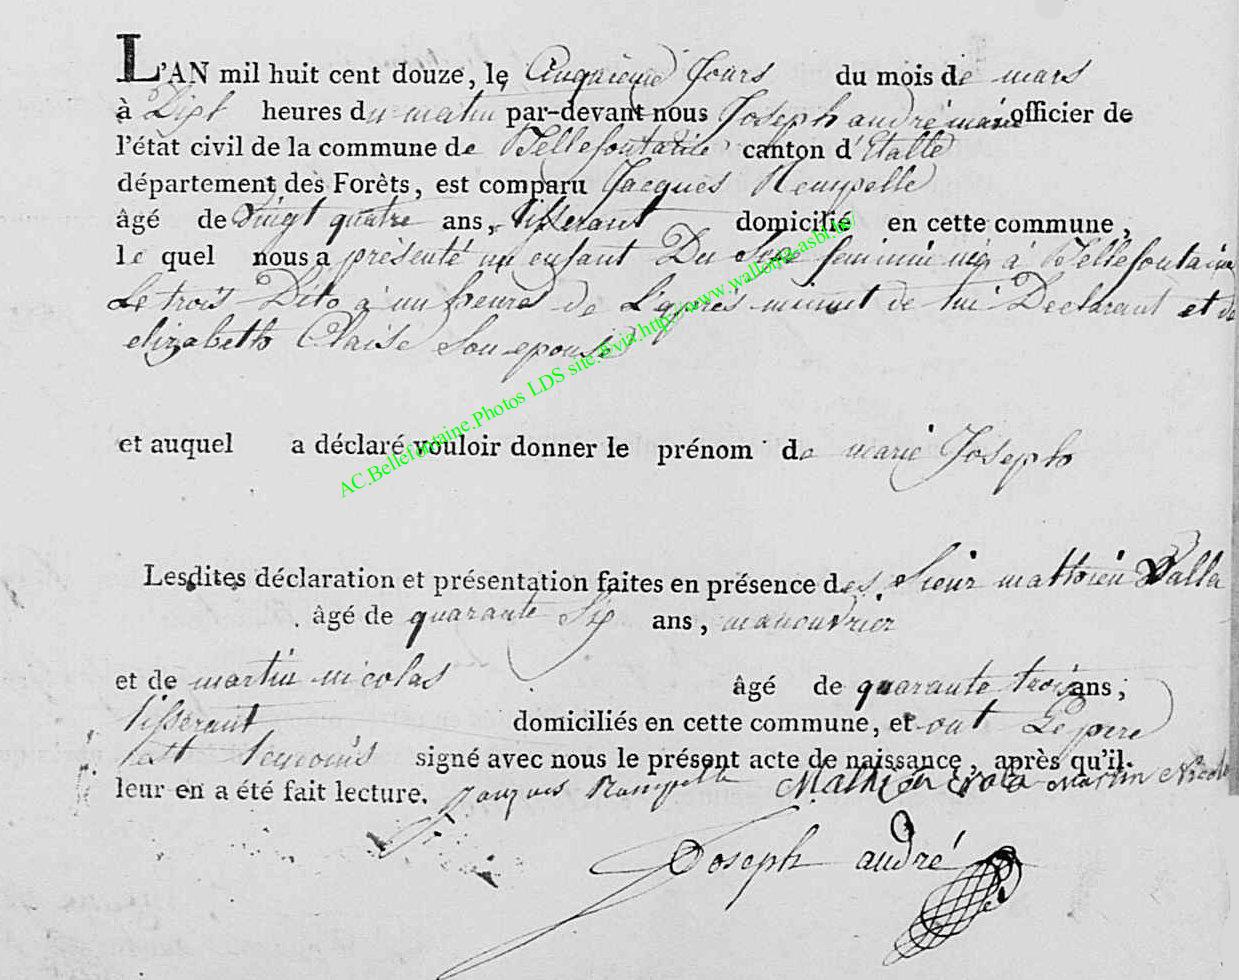 L'AN mil huit cent douze, le Cinquieme Jours du mois de mars
à Dix heures du matin par-devant nous Joseph andré maire officier de
l'état civil de la commune de Bellefontaine canton d'Etalle
département des Forêts, est comparu Jacques Rempelle
âgé de Vingt quatre ans, tisserant domicilié en cette commune,
le quel nous a présenté un enfant Du Sexe feminin né à Bellefontaine
Le trois Dito à un heures de L'après minuit de lui Declarant et de
elizabeth Claise Son epouse
et auquel a déclaré vouloir donner le prénom de marie Joseph
Lesdites déclaration et présentation faites en présence des Sieur mathieu
âgé de quarante Six ans, manouvrier
et de martin nicolas âgé de quarante trois ans,
tisserant domiciliés en cette commune, et ont Le pere
et temouis signé avec nous le présent acte de naissance, après qu'il
leur en a été fait lecture. Mathieu martin Nicolas
Joseph andré
AC.Bellefontaine.Photos LDS site: via.http://www.wallonia-asbl.be/